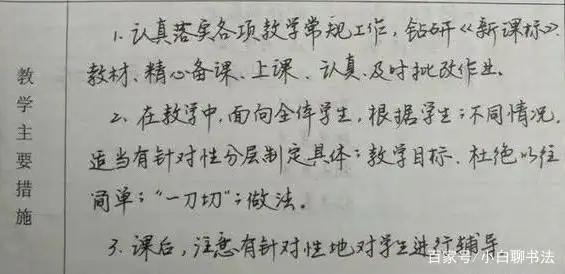 教学主要措施
1. 认真落实各项教学常规工作，钻研《新课标》.
教材、精心备课、上课、认真、及时批改作业.
2、在教学中，面向全体学生，根据学生的不同情况，
适当有针对性分层制定具体的教学目标、杜绝以往
简单的“一刀切”的做法。
3. 课后，注意有针对性地对学生进行辅导
百家号/小白聊书法